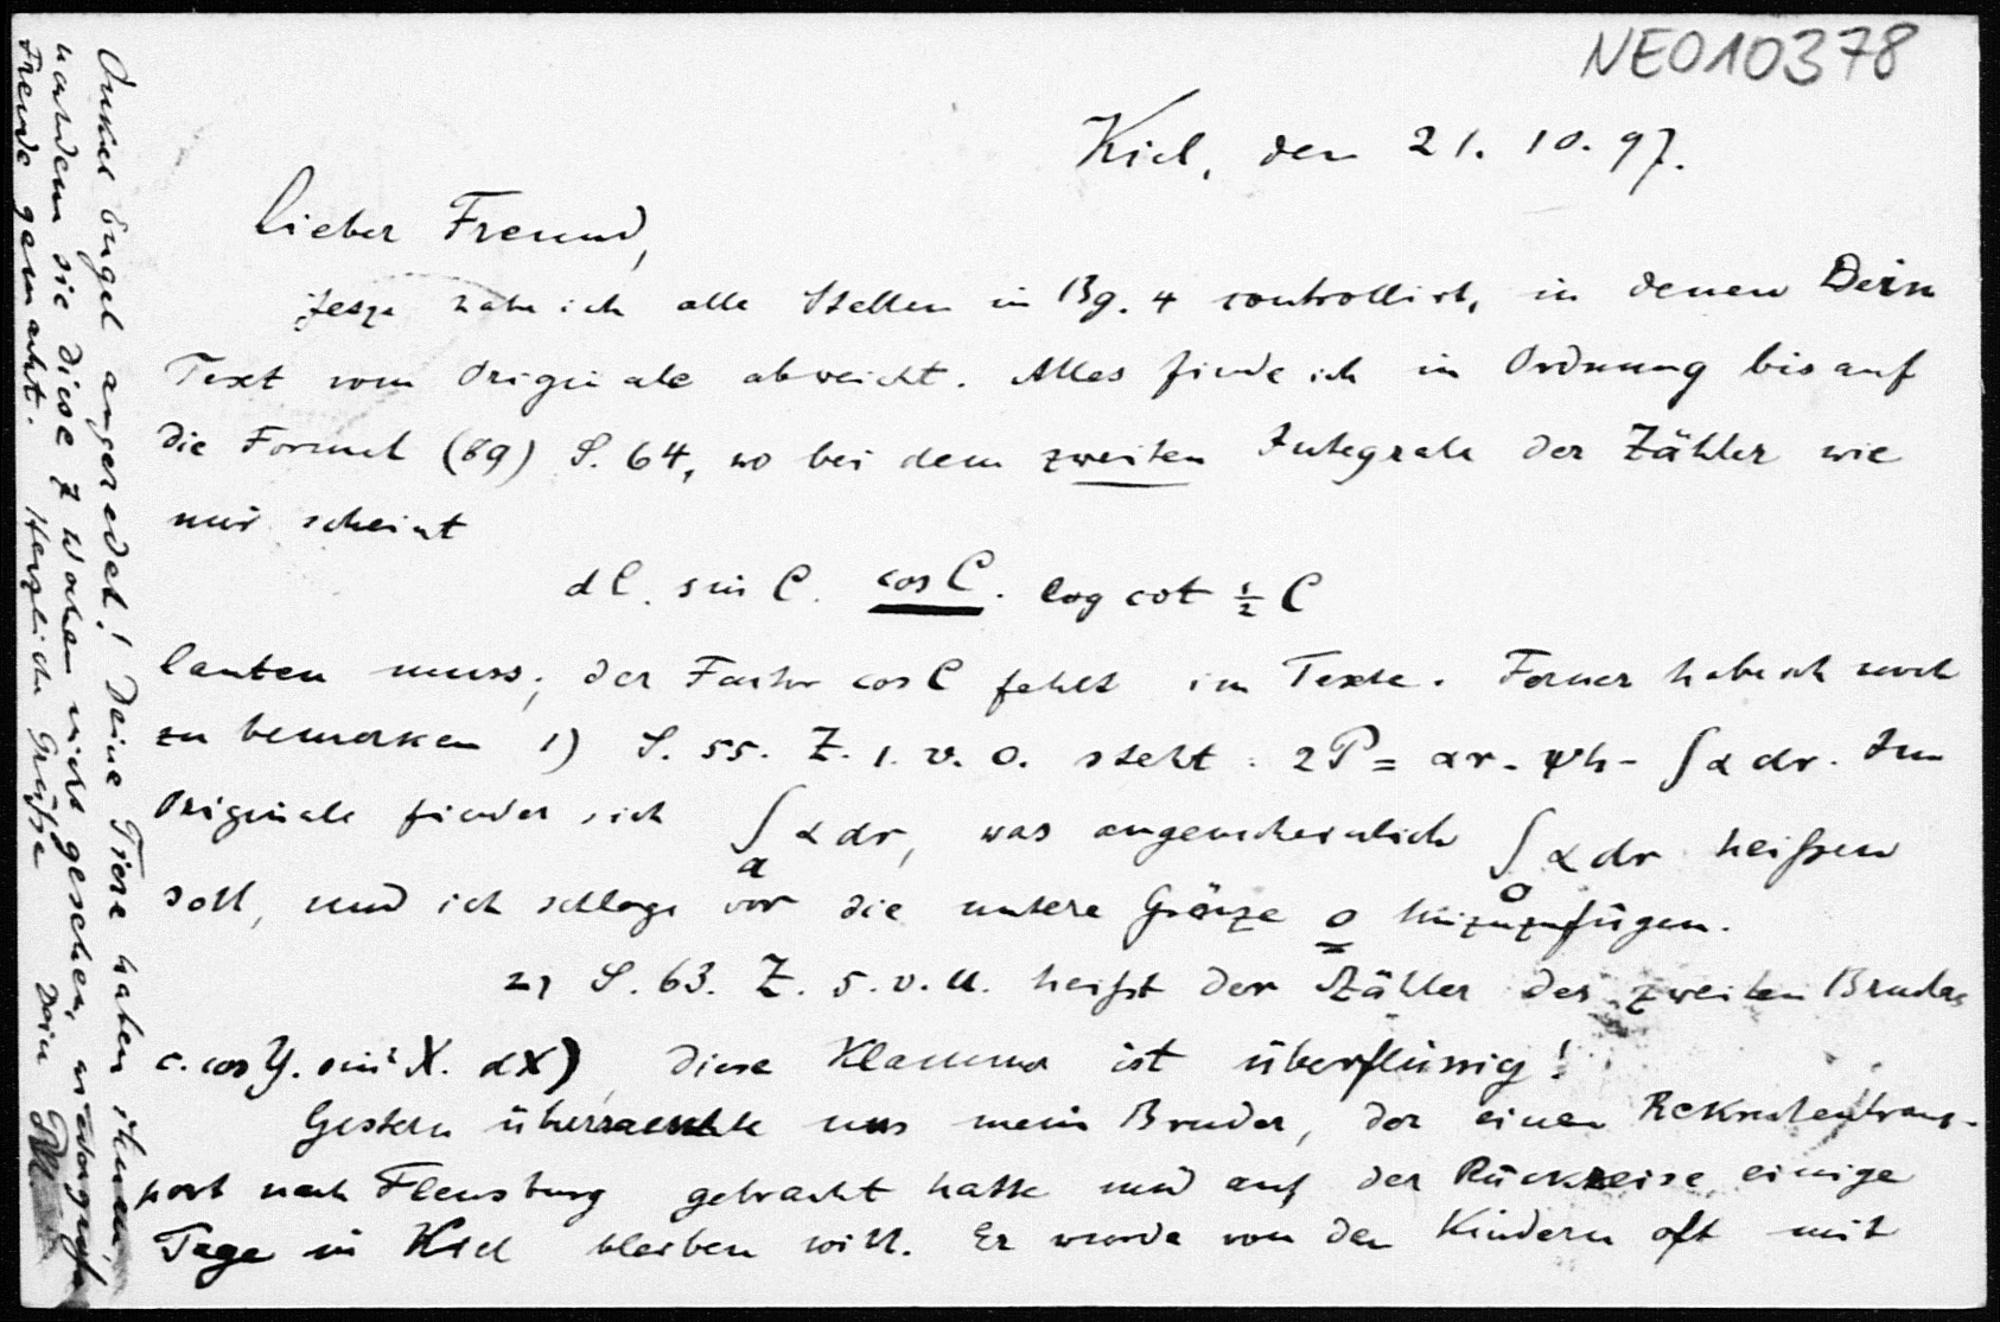 NEO10378
Kiel, den 21. 10. 97.
Lieber Freund,
Jetzt habe ich alle Stellen in Bg. 4 controllirt, in denen Dein
Text vom Originale abweicht. Alles finde ich in Ordnung bis auf
die Formel (89) S. 64, wo bei dem zweiten Integrale der Zähler wie
mir scheint
dC. sin C. cos C. log cot ½ C
lauten muss; der Factor cos C fehlt im Texte. Ferner habe ich noch
zu bemerken 1) S. 55. Z. 1. v. o. steht: 2P = αr - ψh - ∫ α dr. Im
Originale findet sich ∫a α dr, was augenscheinlich ∫0 α dr heißen
soll, und ich schlage vor die untere Gränze 0 hinzuzufügen.
2) S. 63. Z. 5. v. u. heißt der Zähler des zweiten Bruches
c. cos Y. sin² X. dX), diese Klammer ist überflüssig!
Gestern überraschte uns mein Bruder, der einen Rekrutentrans-
port nach Flensburg gebracht hatte und auf der Rückreise einige
Tage in Kiel bleiben will. Er wurde von den Kindern oft mit
Onkel Engel angeredet! Deine Tiere haben ihnen,
nachdem sie diese 7 Wochen nicht gesehen, wieder große
Freude gemacht. Herzliche Grüße Dein